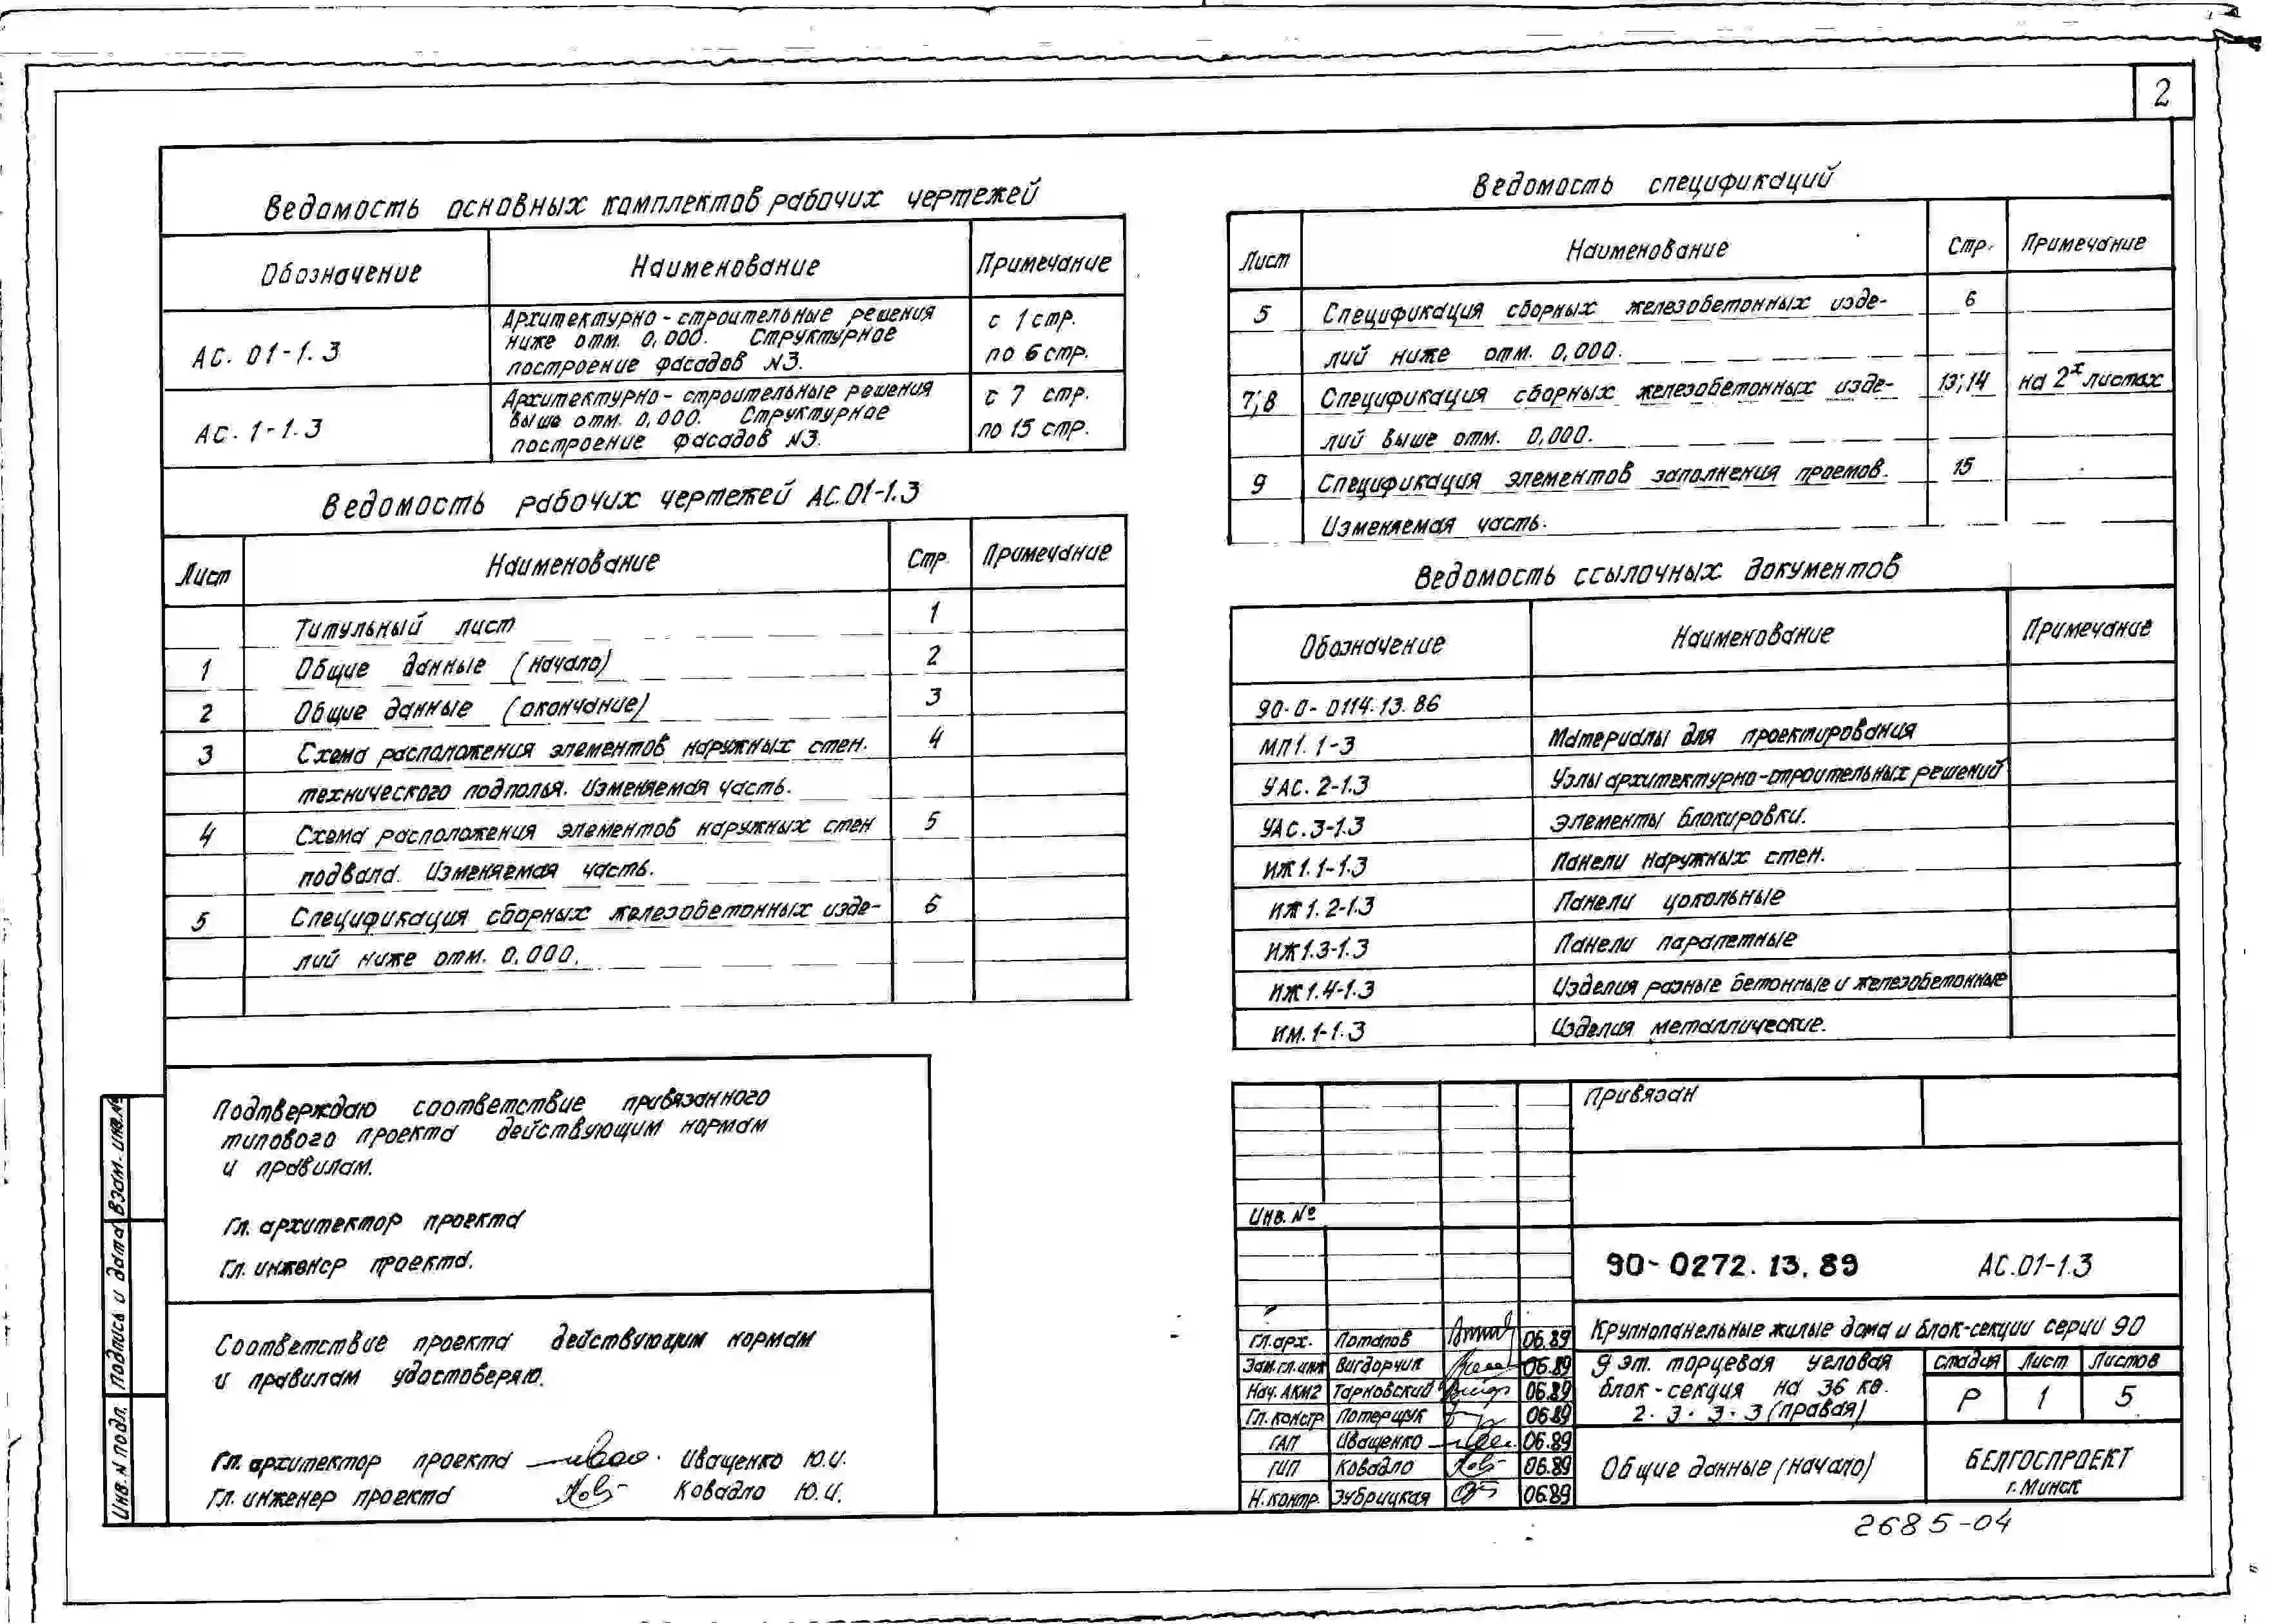 2
Ведомость основных комплектов рабочих чертежей
Обозначение Наименование Примечание
АС. 01-1.3 Архитектурно-строительные решения
ниже отм. 0,000. Структурное
построение фасадов №3.
с 1 стр.
по 6 стр.
АС. 1-1.3 Архитектурно-строительные решения
выше отм. 0,000. Структурное
построение фасадов №3.
с 7 стр.
по 15 стр.
Ведомость рабочих чертежей АС.01-1.3
Лист Наименование Стр. Примечание
Титульный лист 1
1 Общие данные (начало) 2
2 Общие данные (окончание) 3
3 Схема расположения элементов наружных стен. 4
технического подполья. Изменяемая часть.
4 Схема расположения элементов наружных стен 5
подвала. Изменяемая часть.
5 Спецификация сборных железобетонных изде- 6
лий ниже отм. 0,000.
Подтверждаю соответствие привязанного
типового проекта действующим нормам
и правилам.
Гл. архитектор проекта
Гл. инженер проекта.
Соответствие проекта действующим нормам
и правилам удостоверяю.
Гл. архитектор проекта Иващенко Ю.И.
Гл. инженер проекта Ковадло Ю.И.
Взам. инв.№
Подпись и дата
Инв. N подл.
Ведомость спецификаций
Лист Наименование Стр. Примечание
5 Спецификация сборных железобетонных изде- 6
лий ниже отм. 0,000.
7;8 Спецификация сборных железобетонных изде- 13;14 на 2х листах
лий выше отм. 0,000.
9 Спецификация элементов заполнения проемов. 15
Изменяемая часть.
Ведомость ссылочных документов
Обозначение Наименование Примечание
90-0-0114.13.86
МП1.1-3 Материалы для проектирования
УАС.2-1.3 Узлы архитектурно-строительных решений
УАС.3-1.3 Элементы блокировки.
ИЖ1.1-1.3 Панели наружных стен.
ИЖ1.2-1.3 Панели цокольные
ИЖ1.3-1.3 Панели парапетные
ИЖ1.4-1.3 Изделия разные бетонные и железобетонные
ИМ.1-1.3 Изделия металлические.
Привязан
Инв. №
90-0272.13.89 АС.01-1.3
Гл.арх. Потапов 06.89
Зам.гл.инж Вигдорчик 06.89
Нач. АКМ2 Тарновский 06.89
Гл. констр Потерщук 06.89
ГАП Иващенко 06.89
ГИП Ковадло 06.89
Н.контр. Зубрицкая 06.89
Крупнопанельные жилые дома и блок-секции серии 90
9 эт. торцевая угловая
блок-секция на 36 кв.
2.3.3.3 (правая)
стадия Лист Листов
Р 1 5
Общие данные (начало)
БЕЛГОСПРОЕКТ
г.Минск
2685-04